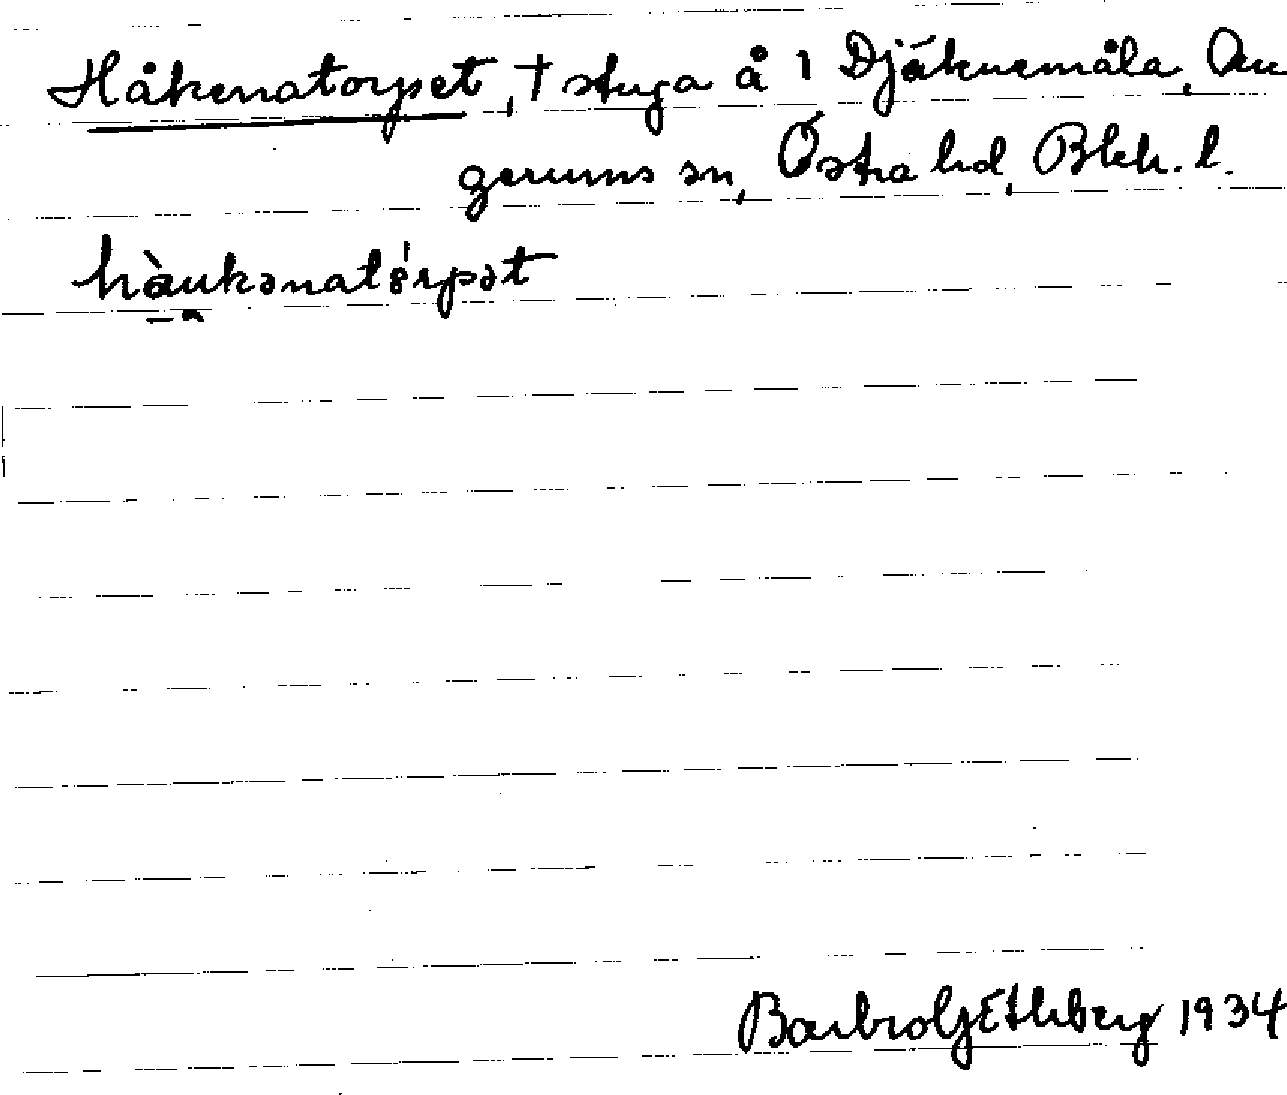 Håkenatorpet, † stuga å 1 Djäknemåla, Au
gerums sn, Östra hd, Blek. l.
hàukənatórpət
Barbro 1934